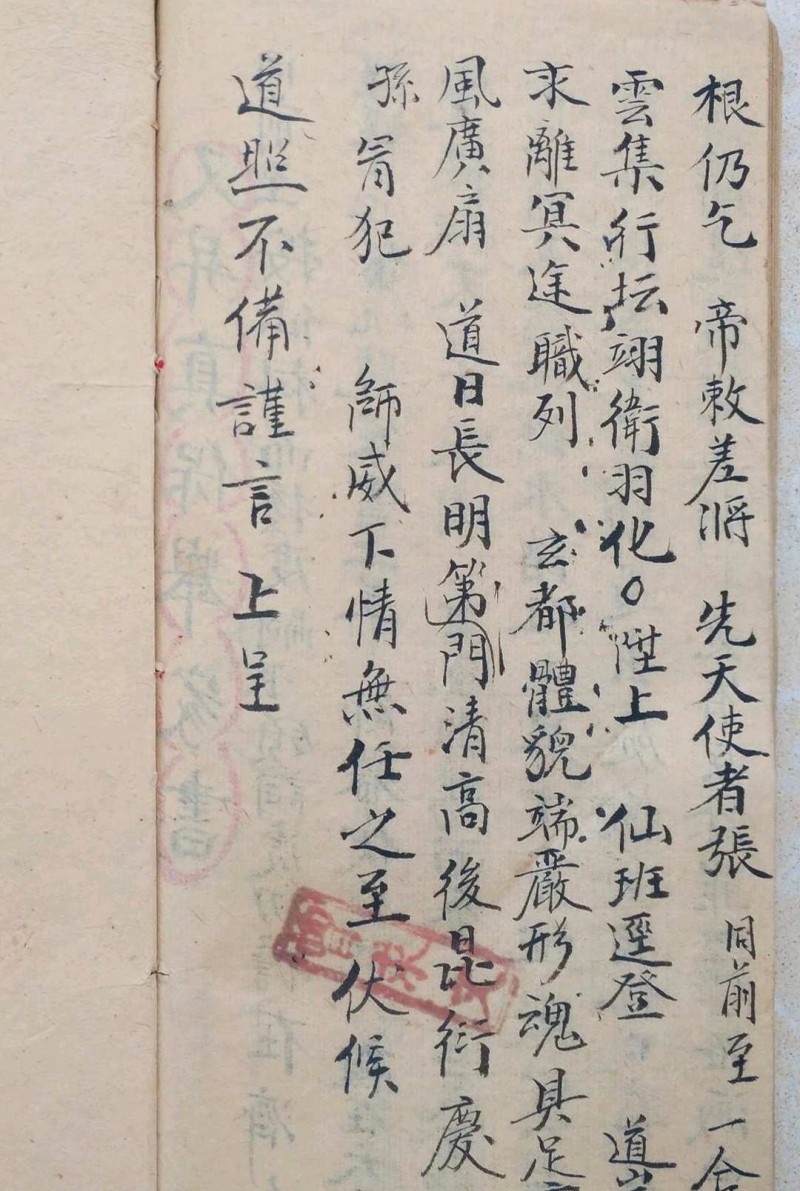 根仍乞 帝敕差將 先天使者張 同前至一合
雲集行坛翊衛羽化○陞上 仙班逕登 道岸
求離冥途職列 玄都體貌端嚴形魂具足
風廣扇 道日長明第門清高後昆衍慶
孫胃犯 師威下情無任之至伏候
道照不備謹言 上呈